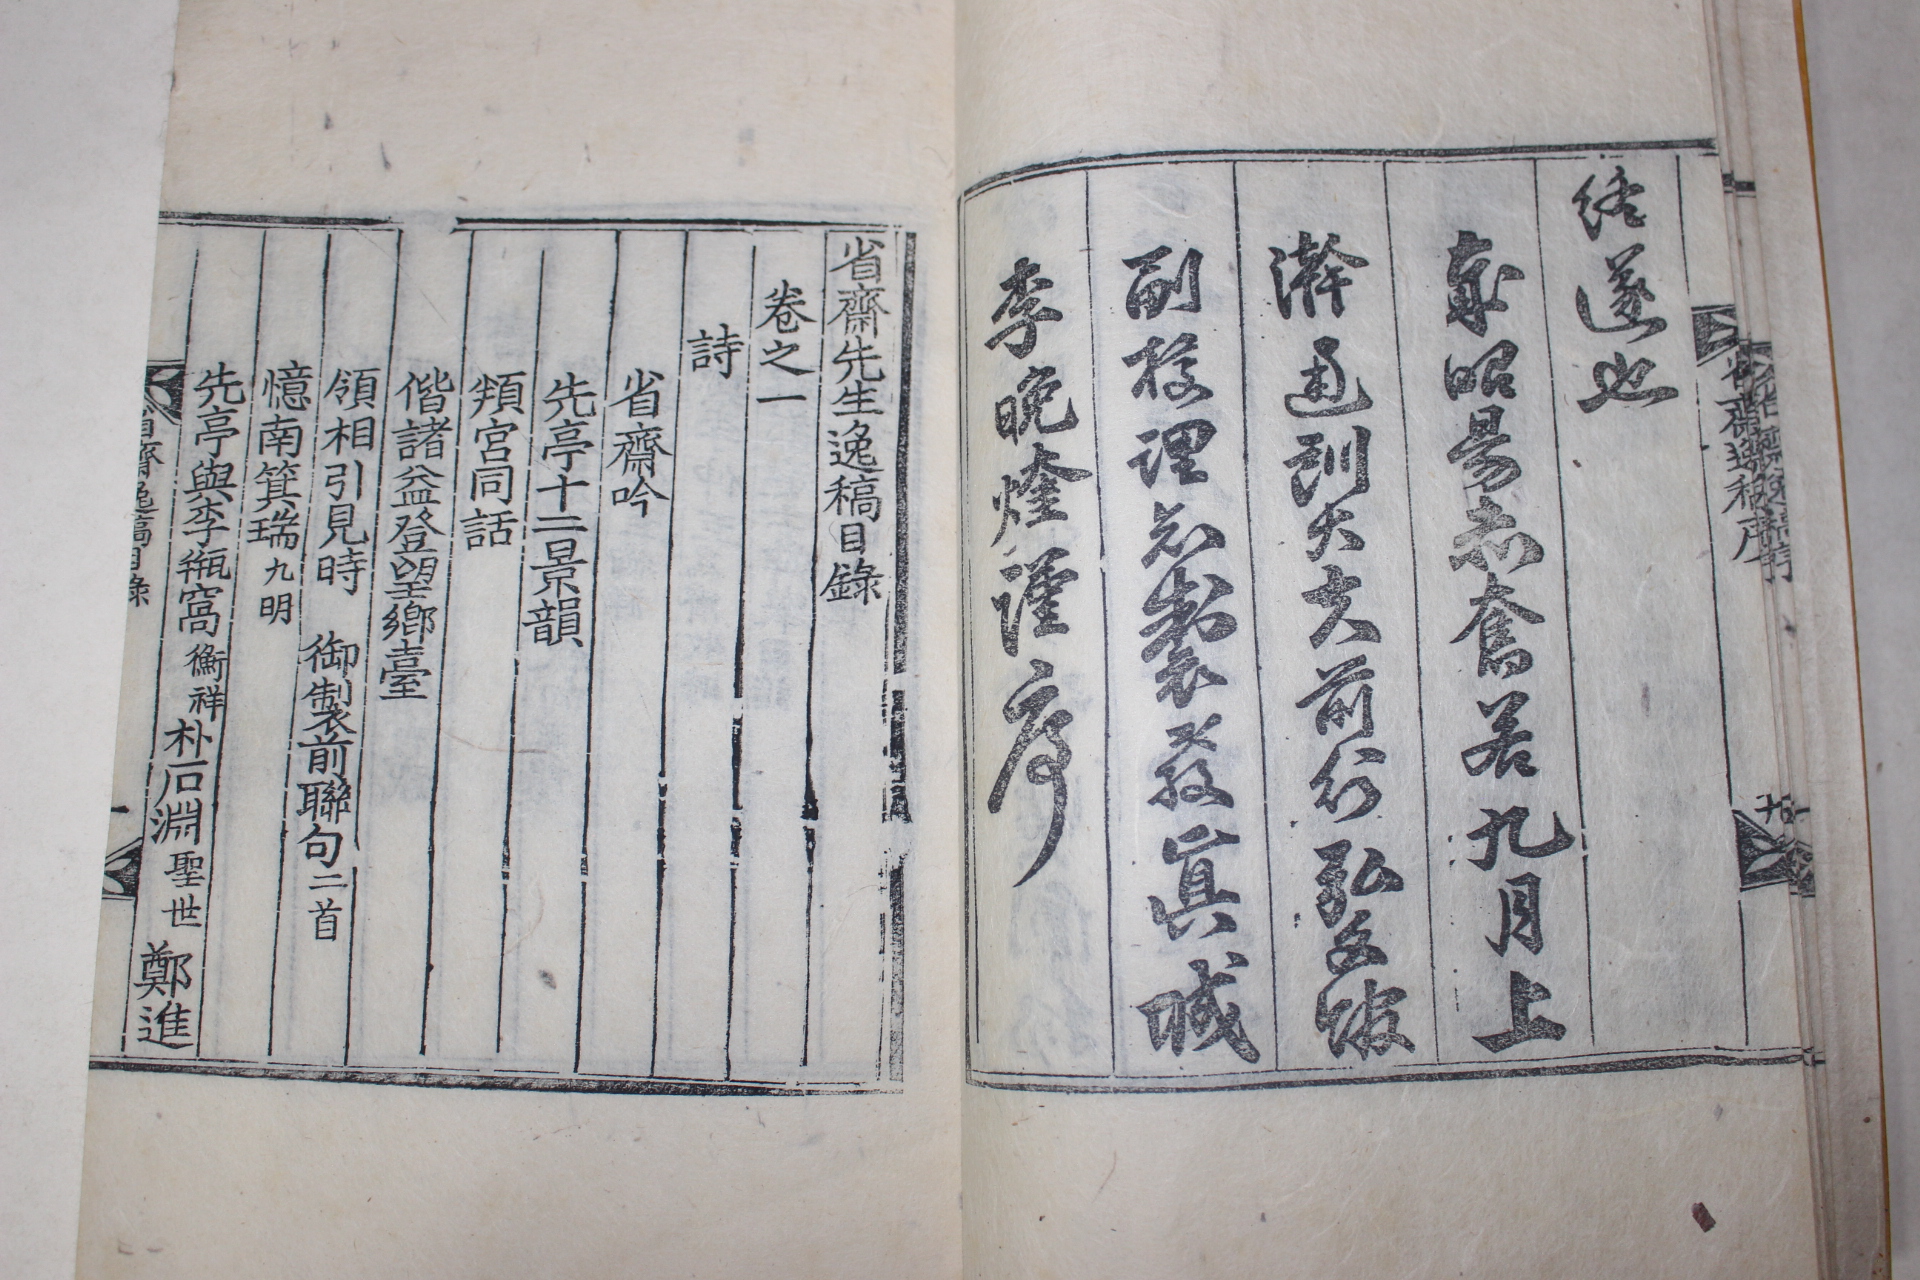 遂也
歲昭昜赤奮若九月上
澣通訓大夫前行弘文館
副校理知製敎眞城
李晩煃謹序
省齋逸稿序
省齋先生逸稿目錄
卷之一
詩
省齋吟
先亭十二景韻
頖宮同話
偕諸益登望鄉臺
領相引見時 御製前聯句二首
憶南箕瑞九明
先亭與李瓶窩衡祥朴石淵聖世 鄭進
省齋逸稿目錄 一